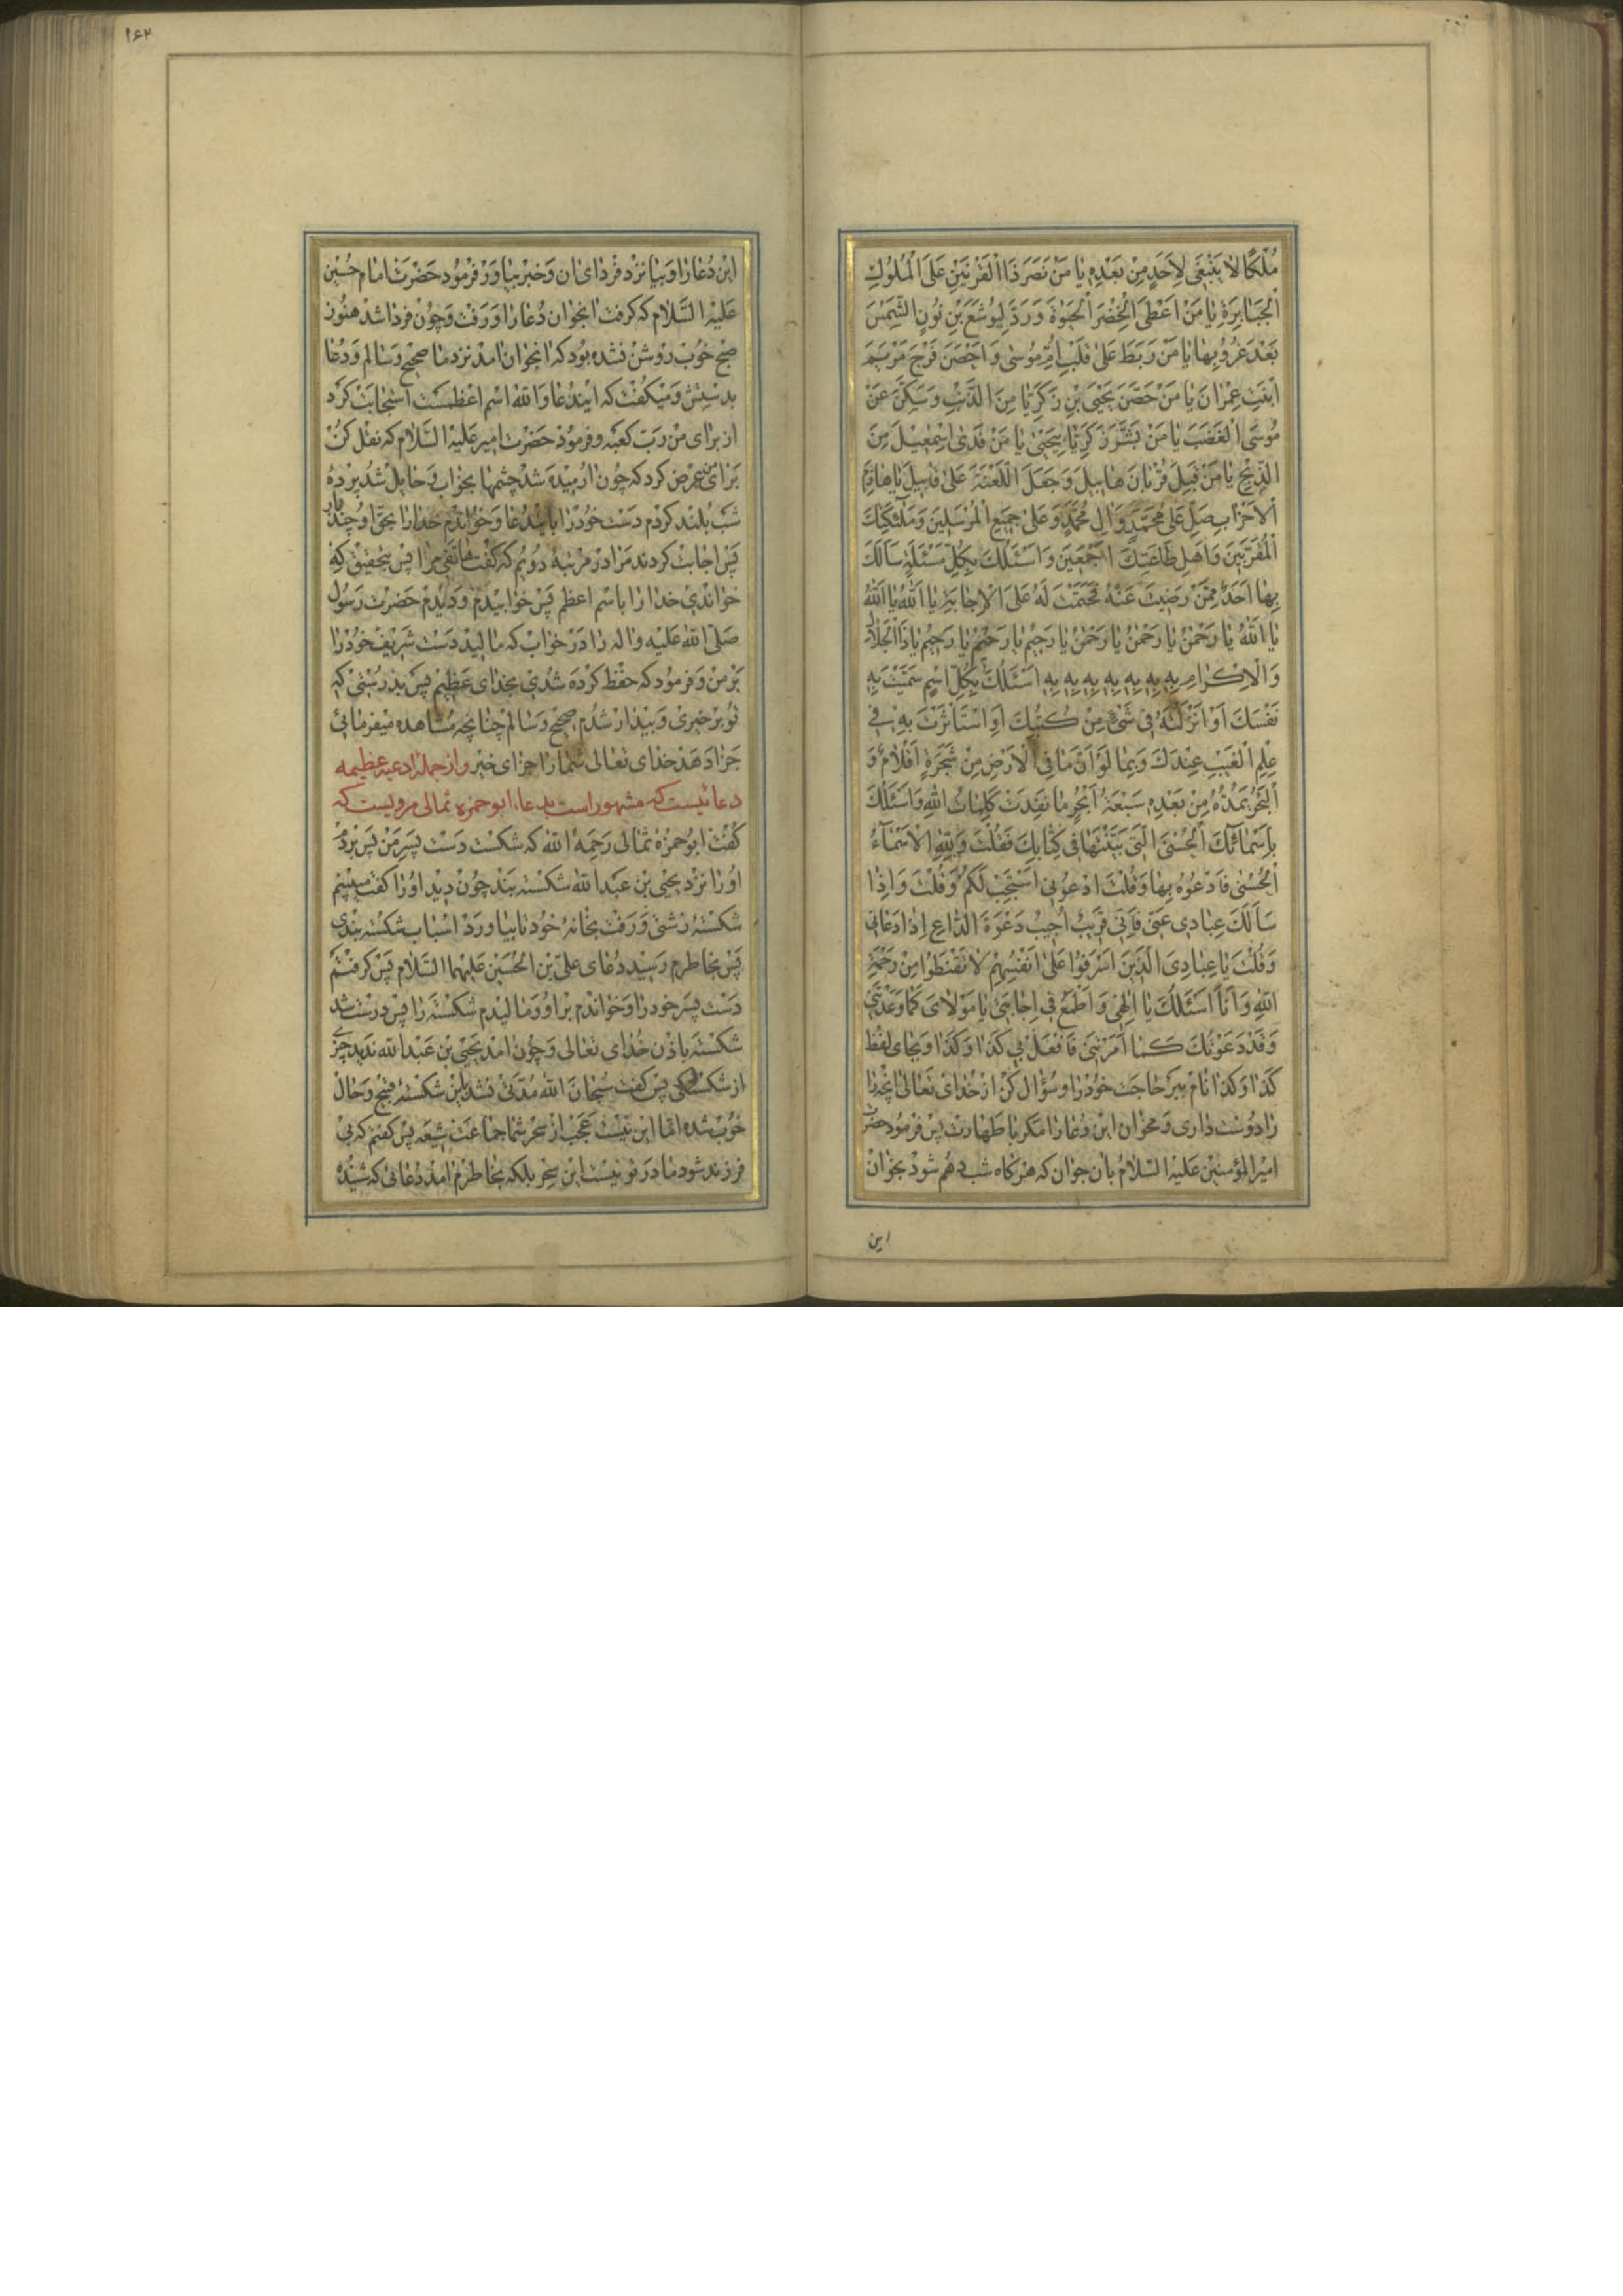 مُلْكًا لا يَنْبَغي لِاَحَدٍ مِنْ بَعْدِهِ يا مَنْ نَصَرَ ذَا الْقَرْنَيْنِ عَلَى الْمُلُوكِ
الْجَبابِرَةِ يا مَنْ اَعْطَى الْخِضْرَ الْحَيٰوةَ وَرَدَّ لِيُوشَعَ بْنِ نُونٍ الشَّمْسَ
بَعْدَ غُرُوبِها يا مَنْ رَبَطَ عَلىٰ قَلْبِ اُمِّ مُوسىٰ وَاَحْصَنَ فَرْجَ مَرْيَمَ
ابْنَتِ عِمْرانَ يا مَنْ حَصَّنَ يَحْيَى بْنِ زَكَرِيّا مِنَ الذَّنْبِ وَسَكَّنَ عَنْ
مُوسَى الْغَضَبَ يا مَنْ بَشَّرَ زَكَرِيّا بِيَحْيىٰ يا مَنْ فَدىٰ اِسْمٰعيلَ مِنَ
الذِّبْحِ يا مَنْ قَبِلَ قُرْبانَ هابيلَ وَجَعَلَ اللَّعْنَةَ عَلىٰ قابيلَ يا هازِمَ
الْاَحْزابِ صَلِّ عَلىٰ مُحَمَّدٍ وَآلِ مُحَمَّدٍ وَعَلىٰ جَميعِ الْمُرْسَلينَ وَمَلٰئِكَتِكَ
الْمُقَرَّبينَ وَاَهْلِ طاعَتِكَ اَجْمَعينَ وَاَسْئَلُكَ بِكُلِّ مَسْئَلَةٍ سَاَلَكَ
بِها اَحَدٌ مِمَّنْ رَضيتَ عَنْهُ فَحَتَمْتَ لَهُ عَلَى الْاِجابَةِ يا اَللّٰهُ يا اَللّٰهُ
يا اَللّٰهُ يا رَحْمٰنُ يا رَحْمٰنُ يا رَحْمٰنُ يا رَحيمُ يا رَحيمُ يا رَحيمُ يا ذَا الْجَلالِ
وَالْاِكْرامِ بِهِ بِهِ بِهِ بِهِ بِهِ بِهِ بِهِ اَسْئَلُكَ بِكُلِّ اسْمٍ سَمَّيْتَ بِهِ
نَفْسَكَ اَوْ اَنْزَلْتَهُ في شَيْءٍ مِنْ كُتُبِكَ اَوِ اسْتَأْثَرْتَ بِهِ في
عِلْمِ الْغَيْبِ عِنْدَكَ وَبِما لَوْ اَنَّ ما فِي الْاَرْضِ مِنْ شَجَرَةٍ اَقْلامٌ وَ
الْبَحْرُ يَمُدُّهُ مِنْ بَعْدِهِ سَبْعَةُ اَبْحُرٍ ما نَفِدَتْ كَلِماتُ اللّٰهِ وَاَسْئَلُكَ
بِاَسْمائِكَ الْحُسْنىٰ الَّتي بَيَّنْتَها في كِتابِكَ فَقُلْتَ وَلِلّٰهِ الْاَسْمآءُ
الْحُسْنىٰ فَادْعُوهُ بِها وَقُلْتَ ادْعُوني اَسْتَجِبْ لَكُمْ وَقُلْتَ وَاِذا
سَاَلَكَ عِبادي عَنّي فَاِنّي قَريبٌ اُجيبُ دَعْوَةَ الدّاعِ اِذا دَعاني
وَقُلْتَ يا عِبادِيَ الَّذينَ اَسْرَفُوا عَلىٰ اَنْفُسِهِمْ لا تَقْنَطُوا مِنْ رَحْمَةِ
اللّٰهِ وَاَنَا اَسْئَلُكَ يا اِلٰهي وَاَطْمَعُ في اِجابَتي يا مَوْلايَ كَما وَعَدْتَني
وَقَدْ دَعَوْتُكَ كَما اَمَرْتَني فَافْعَلْ بي كَذا وَكَذا وبجاى لفظ
كَذا وَكَذا نام ببر حاجت خود را وسؤال كن از خداى تعالى انچه را
را دوست دارى ومخوان اين دعا را مكر با طهارت پس فرمود حضرت
امير المؤمنين عليه السلام بان جوان كه هركاه شب دهم شود بخوان
اين
۱۶۲
اين دعا را وبيا نزد فرداى ان وخبر بياور فرمود حضرت امام حسين
عليه السلام كه كرفت انجوان دعا را ورفت وچون فردا شد هنوز
صبح خوب روشن نشده بود كه انجوان امد نزد ما صحيح وسالم ودعا
بدستش وميكفت كه ايندعا والله اسم اعظمست استجابت كرد
از براى من رب كعبه وفرمود حضرت امير عليه السلام كه نقل كن
براى من عرض كرد كه چون ارميده شد چشمها بخواب وحايل شد پرده
شب بلند كردم دست خود را بايندعا وخواندم خدا را بحق او چند بار
پس اجابت كردند مرا در مرتبه دويم كه كفت هاتفى مرا پس بتحقيق كه
خواندى خدا را باسم اعظم پس خوابيدم وديدم حضرت رسول
صلى الله عليه واله را در خواب كه ماليد دست شريف خود را
بر من وفرمود كه حفظ كرده شدى بخداى عظيم پس بدرستى كه
تو بر خيرى وبيدار شدم صحيح وسالم چنانچه مشاهده ميفرمائى
جزا دهد خداى تعالى شما را جزاى خير واز جمله ادعيه عظيمه
دعائيست كه مشهور است بدعاء ابو حمزه ثمالى مرويست كه
كفت ابو حمزه ثمالى رحمه الله كه شكست دست پسر من پس بردم
او را نزد يحيى بن عبد الله شكسته بند چون ديد او را كفت ميبينم
شكسته زشتى ورفت بخانه خود تا بياورد اسباب شكسته بندى
پس بخاطرم رسيد دعاى على بن الحسين عليهما السلام پس كرفتم
دست پسر خود را وخواندم بر او وماليدم شكسته را پس درست شد
شكسته باذن خداى تعالى وچون امد يحيى بن عبد الله نديد چيزى
از شكستكى پس كفت سبحان الله مدتى نشد باين شكسته قبيح وحال
خوب شده اما اين نيست عجب از سحر شما جماعت شيعه پس كفتم كه بى
فرزند شود مادر تو نيست اين سحر بلكه بخاطرم امد دعائى كه شنيده